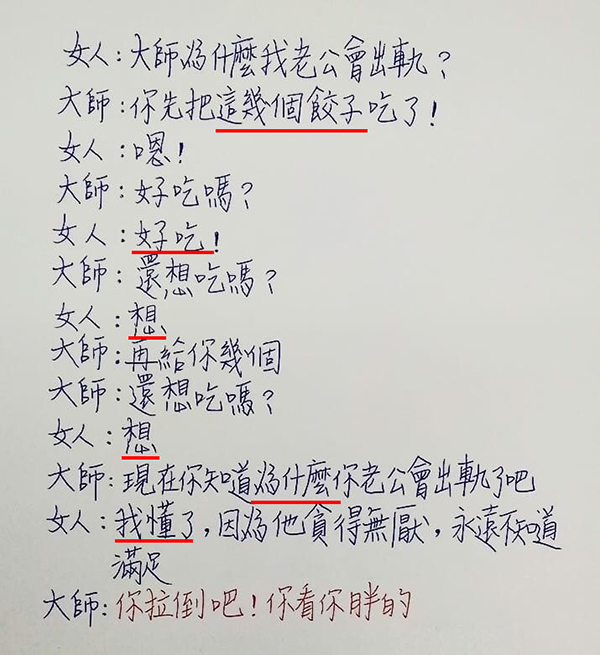 女人：大師為什麼我老公會出軌？
大師：你先把這幾個餃子吃了！
女人：嗯！
大師：好吃嗎？
女人：好吃！
大師：還想吃嗎？
女人：想
大師：再給你幾個
大師：還想吃嗎？
女人：想
大師：現在你知道為什麼你老公會出軌了吧
女人：我懂了，因為他貪得無厭，永遠不知道
滿足
大師：你拉倒吧！你看你胖的